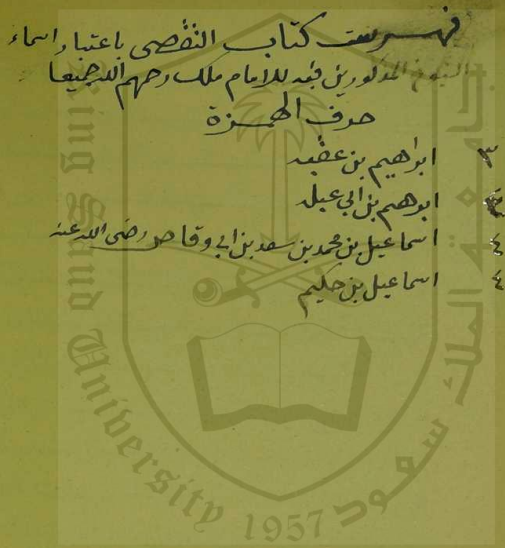 فهرست كتاب التقصى باعتبار اسماء
الشيوخ المذكورين فيه للامام ملك رحمهم الله جميعا
حرف الهمزة
٣ ابراهيم بن عقبه
٣ ابرهيم بن ابي عبله
٤ اسماعيل بن محمد بن سعد بن ابي وقاص رضى الله عنه
٤ اسماعيل بن حكيم
جامعة الملك سعود
King Saud University
1957